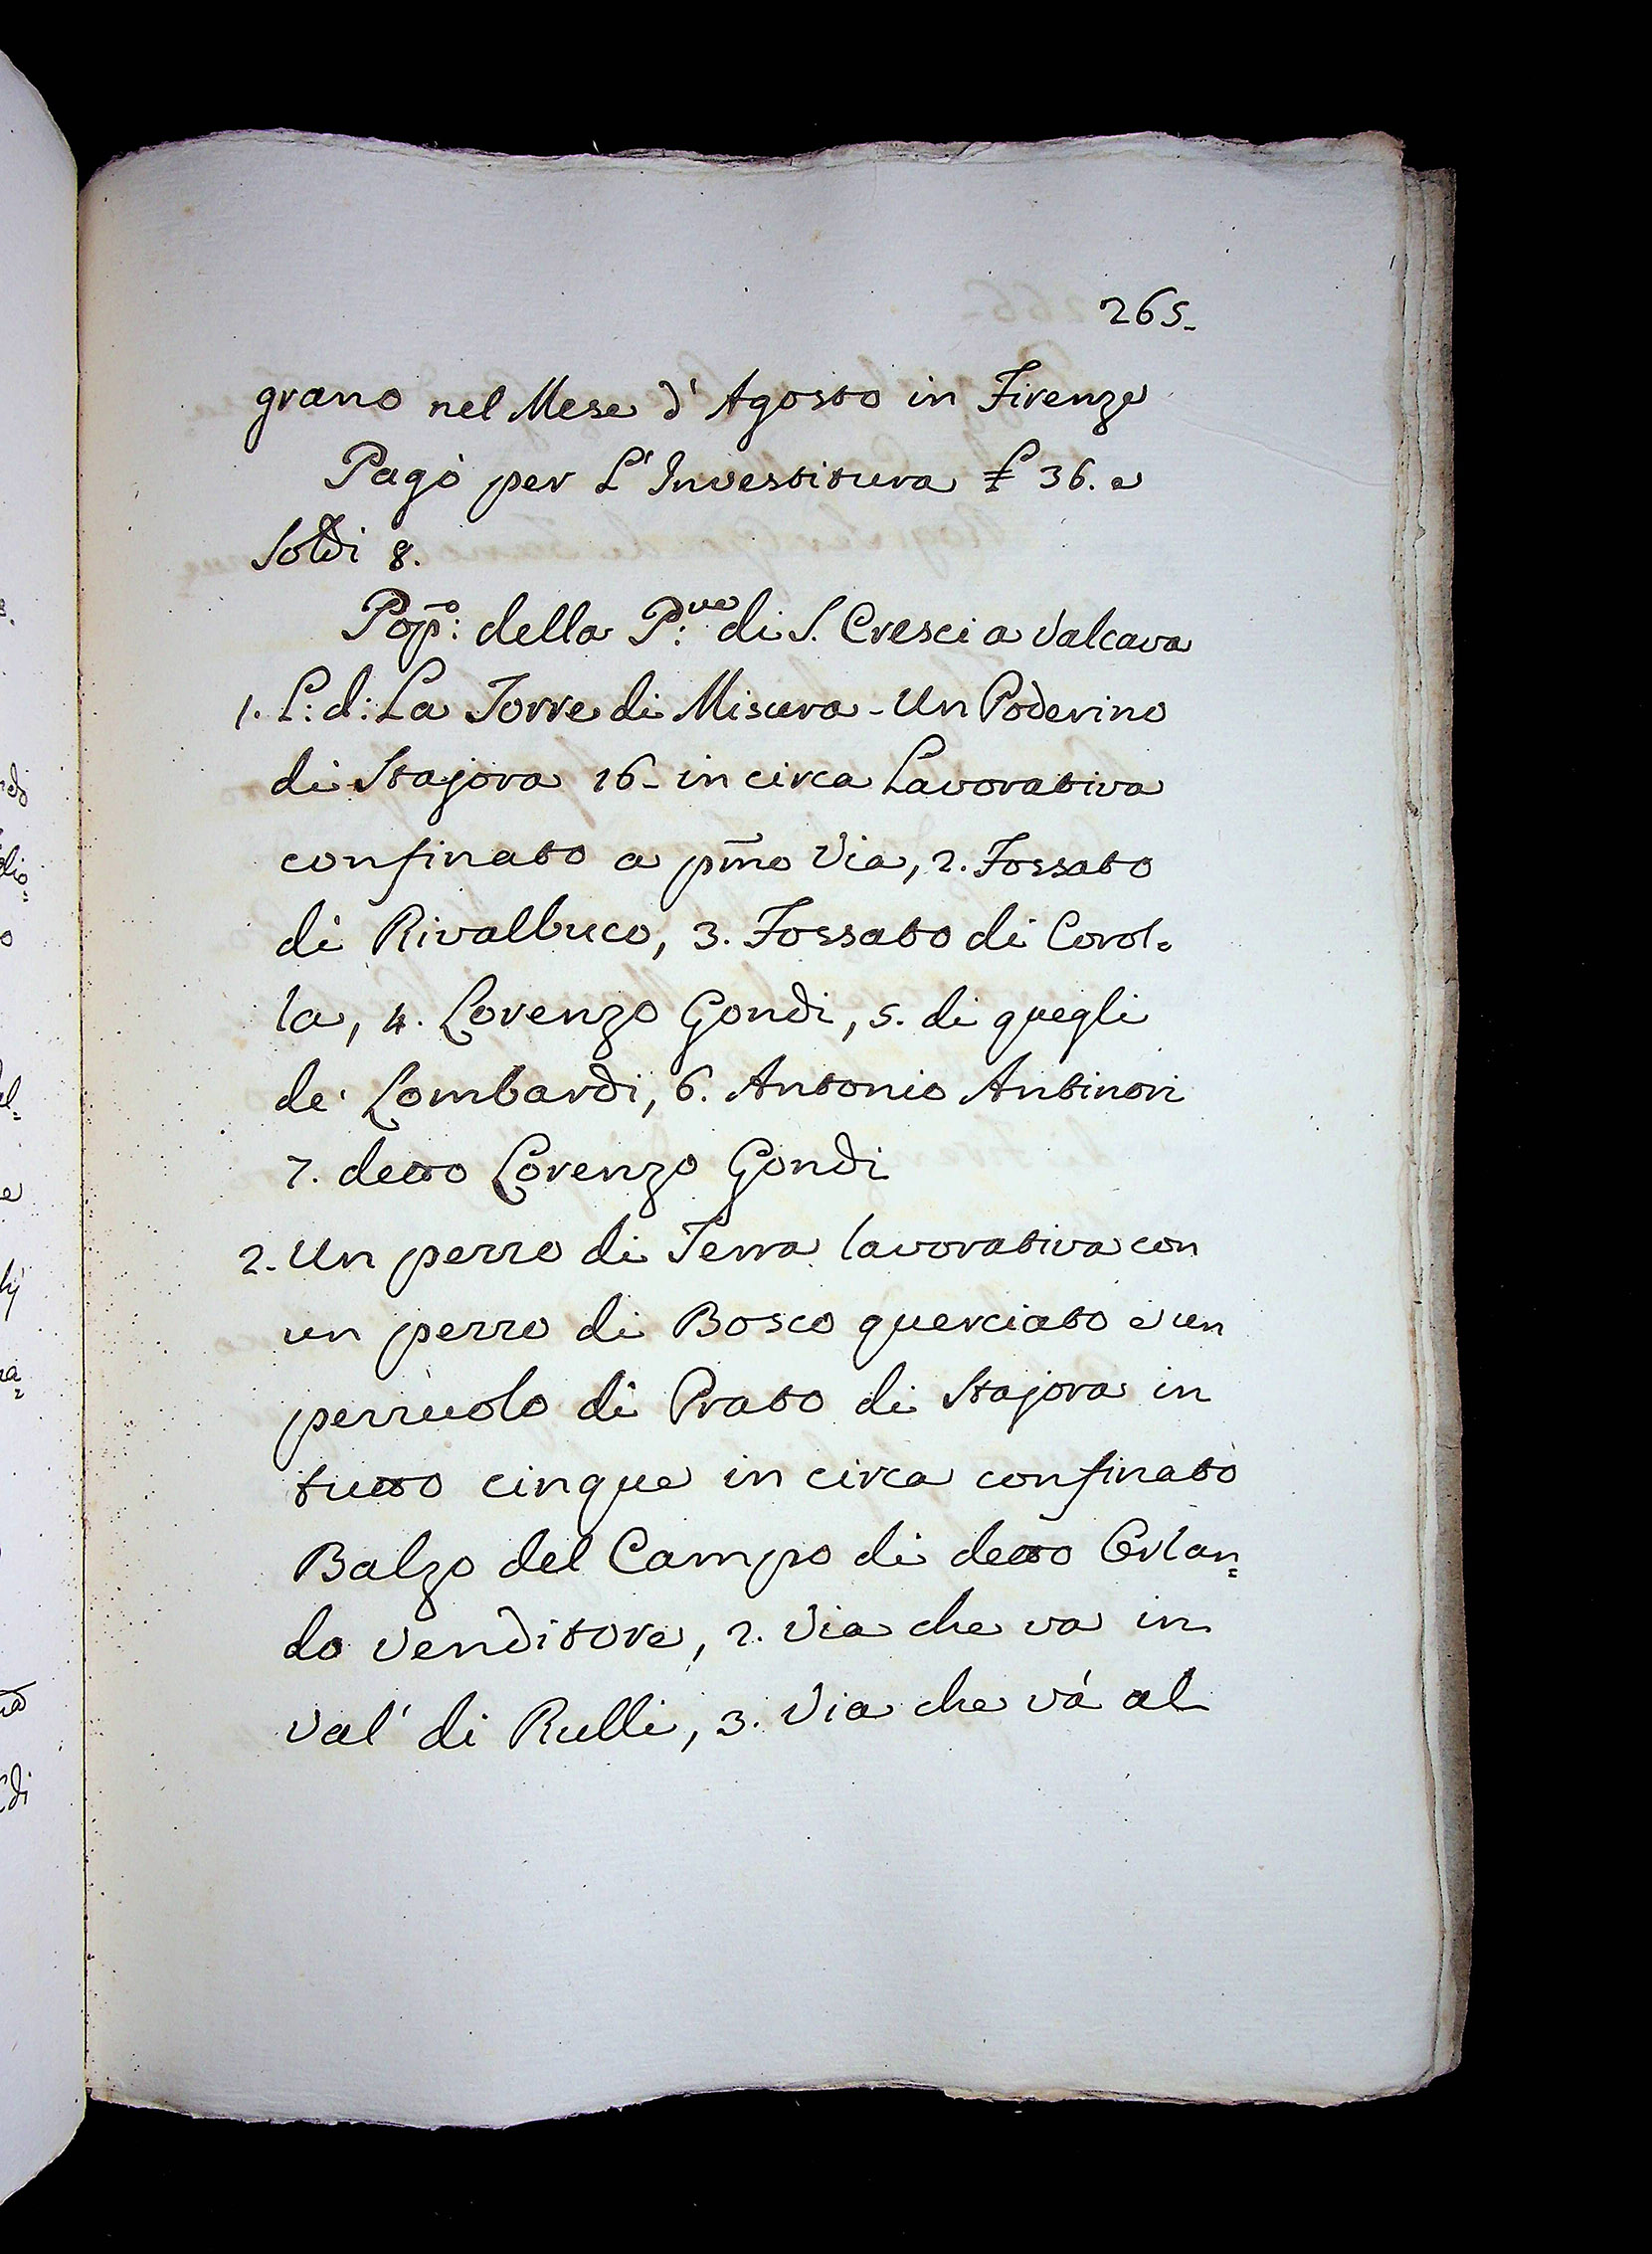 265.
grano nel Mese d'Agosto in Firenze
Pagò per L'Investitura £ 36. e
Soldi 8.
Pop̄:º della P:ve di S. Cresci a Valcava
1. L: d: La Torre di Misura - Un Poderino
di Stajora 16- in circa Lavorativa
confinato a pm̄o Via, 2. Fossato
di Rivalbuco, 3. Fossato di Corol=
la, 4. Lorenzo Gondi, 5. di quegli
de' Lombardi, 6. Antonio Antinori
7. detto Lorenzo Gondi
2. Un pezzo di Terra lavorativa con
un pezzo di Bosco querciato e un
pezzuolo di Prato di Stajora in
tutto cinque in circa confinato
Balzo del Campo di detto Orlan=
do Venditore, 2. Via che va in
Val' di Rulli, 3. Via che và al